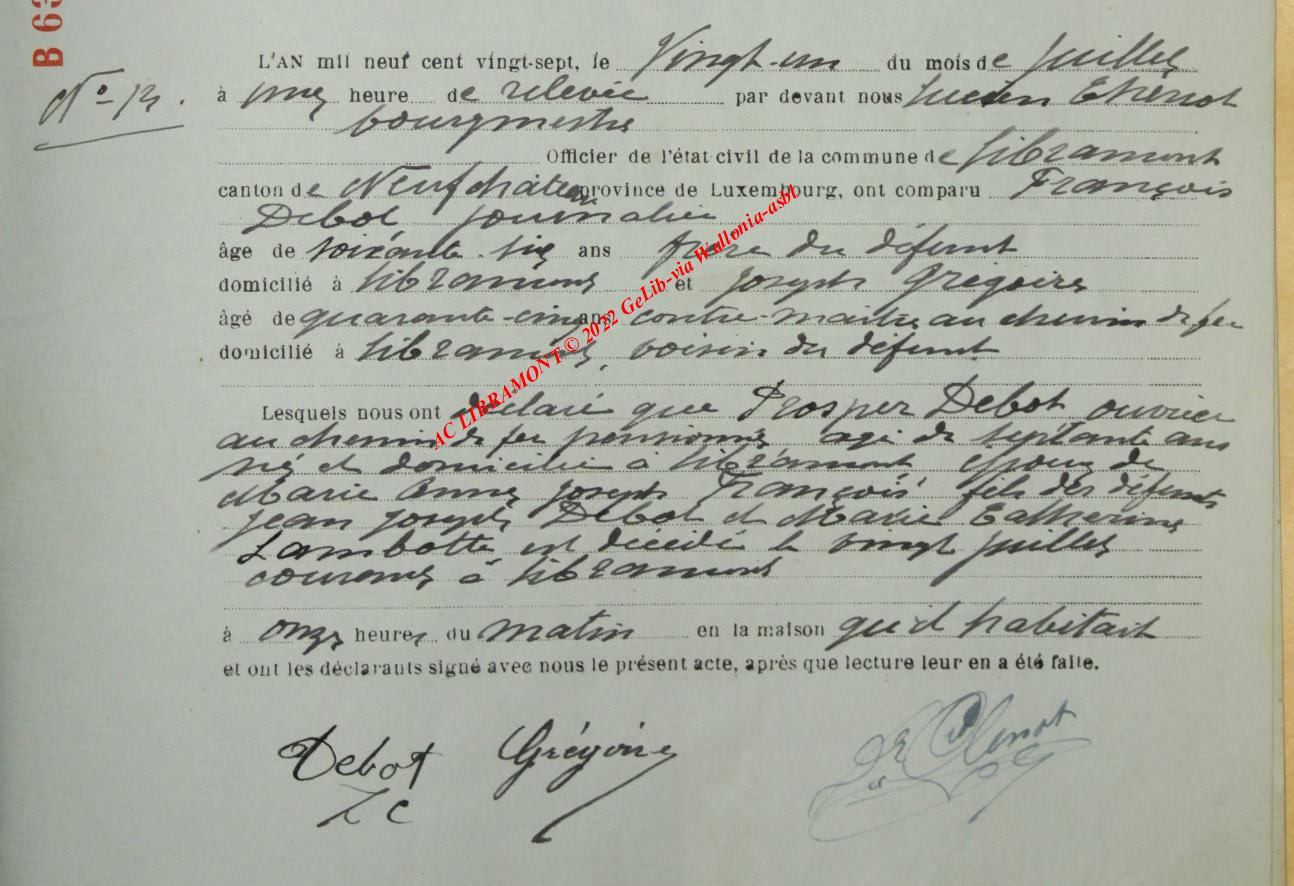 B 63
N° 13.
L'AN mil neuf cent vingt-sept, le vingt-un du mois de juillet
à une heure de relevée par devant nous Lucien Ethénot
bourgmestre
Officier de l'état civil de la commune de Libramont
canton de Neufchâteau province de Luxembourg, ont comparu François
Debot journalier
âge de soixante-six ans frère du défunt
domicilié à Libramont et Joseph Grégoire
âgé de quarante-cinq ans contre-maître au chemin de fer
domicilié à Libramont, voisin du défunt
Lesquels nous ont déclaré que Prosper Debot ouvrier
au chemin de fer pensionné agé de septante ans
né et domicilié à Libramont époux de
Marie Anne Joseph François fils des défunts
Jean Joseph Debot et Marie Catherine
Lambotte est décédé le vingt juillet
courant à Libramont
à onze heures du matin en la maison qu'il habitait
et ont les déclarants signé avec nous le présent acte, après que lecture leur en a été faite.
Debot Grégoire
AC LIBRAMONT © 2022 GeLib-via Wallonia-asbl